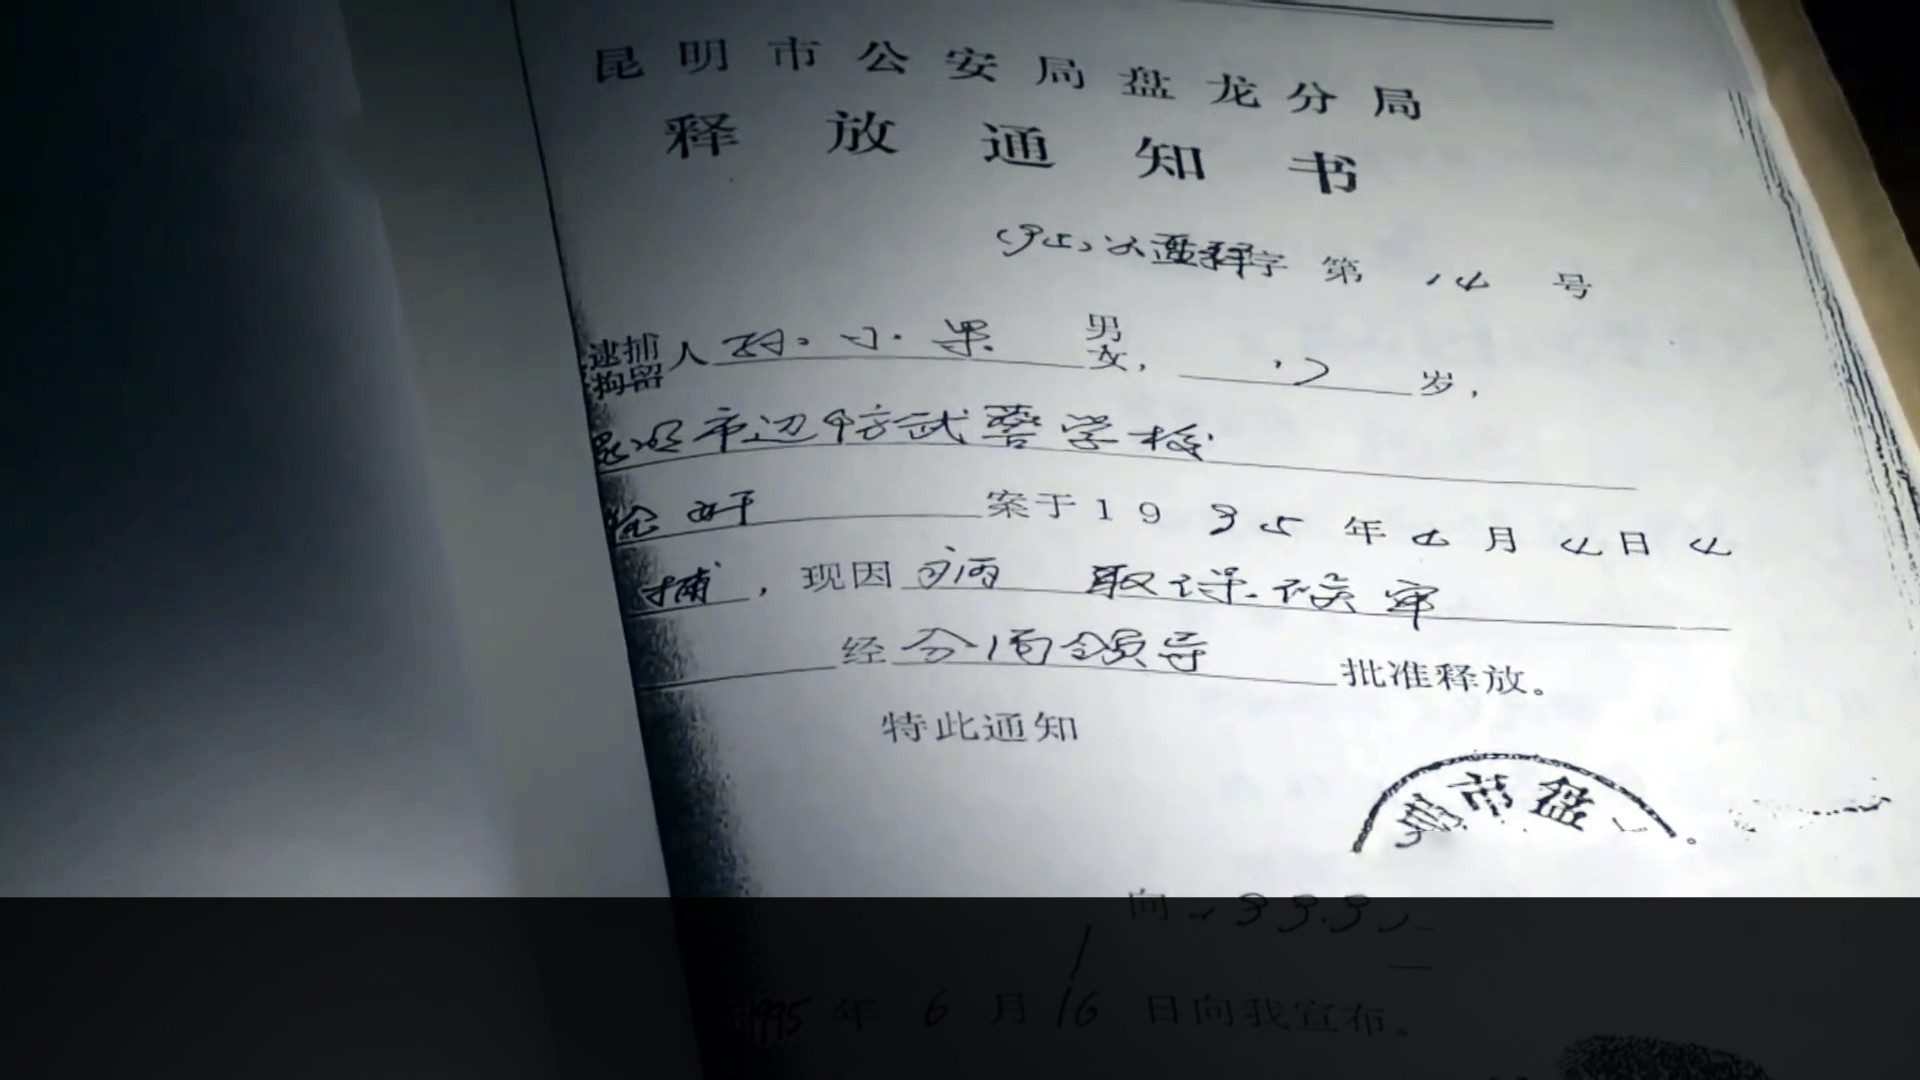 昆明市公安局盘龙分局
释放通知书
(95)公盘释字 第 14 号
逮捕
拘留
人 孙小果 男
女, 17 岁,
昆明市边防武警学校
轮奸 案于1995年4月4日
捕,现因病 取保候审
经分局领导 批准释放。
特此通知
明市盘
向
1995年6月16日向我宣布。